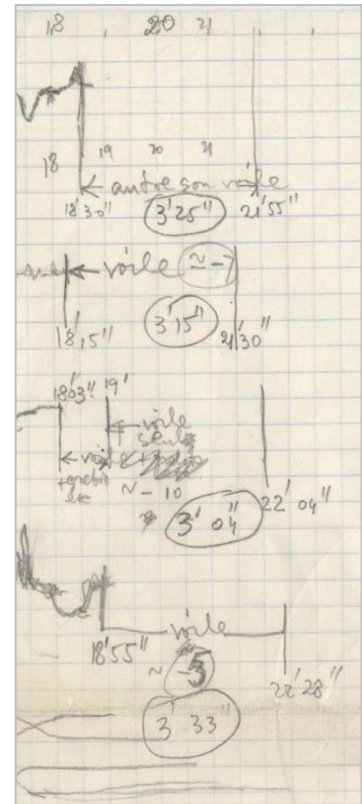 18 20 21
18 19 20 21
autre son voile
18'30" 3'25" 21'55"
voile ≃ -7
18'15" 3'15" 21'30"
18'03" 19'
voile
seule
voile +
etc
~ -10
3' 04" 22' 04"
voile
18'55"
~ -5 22'28"
3' 33"